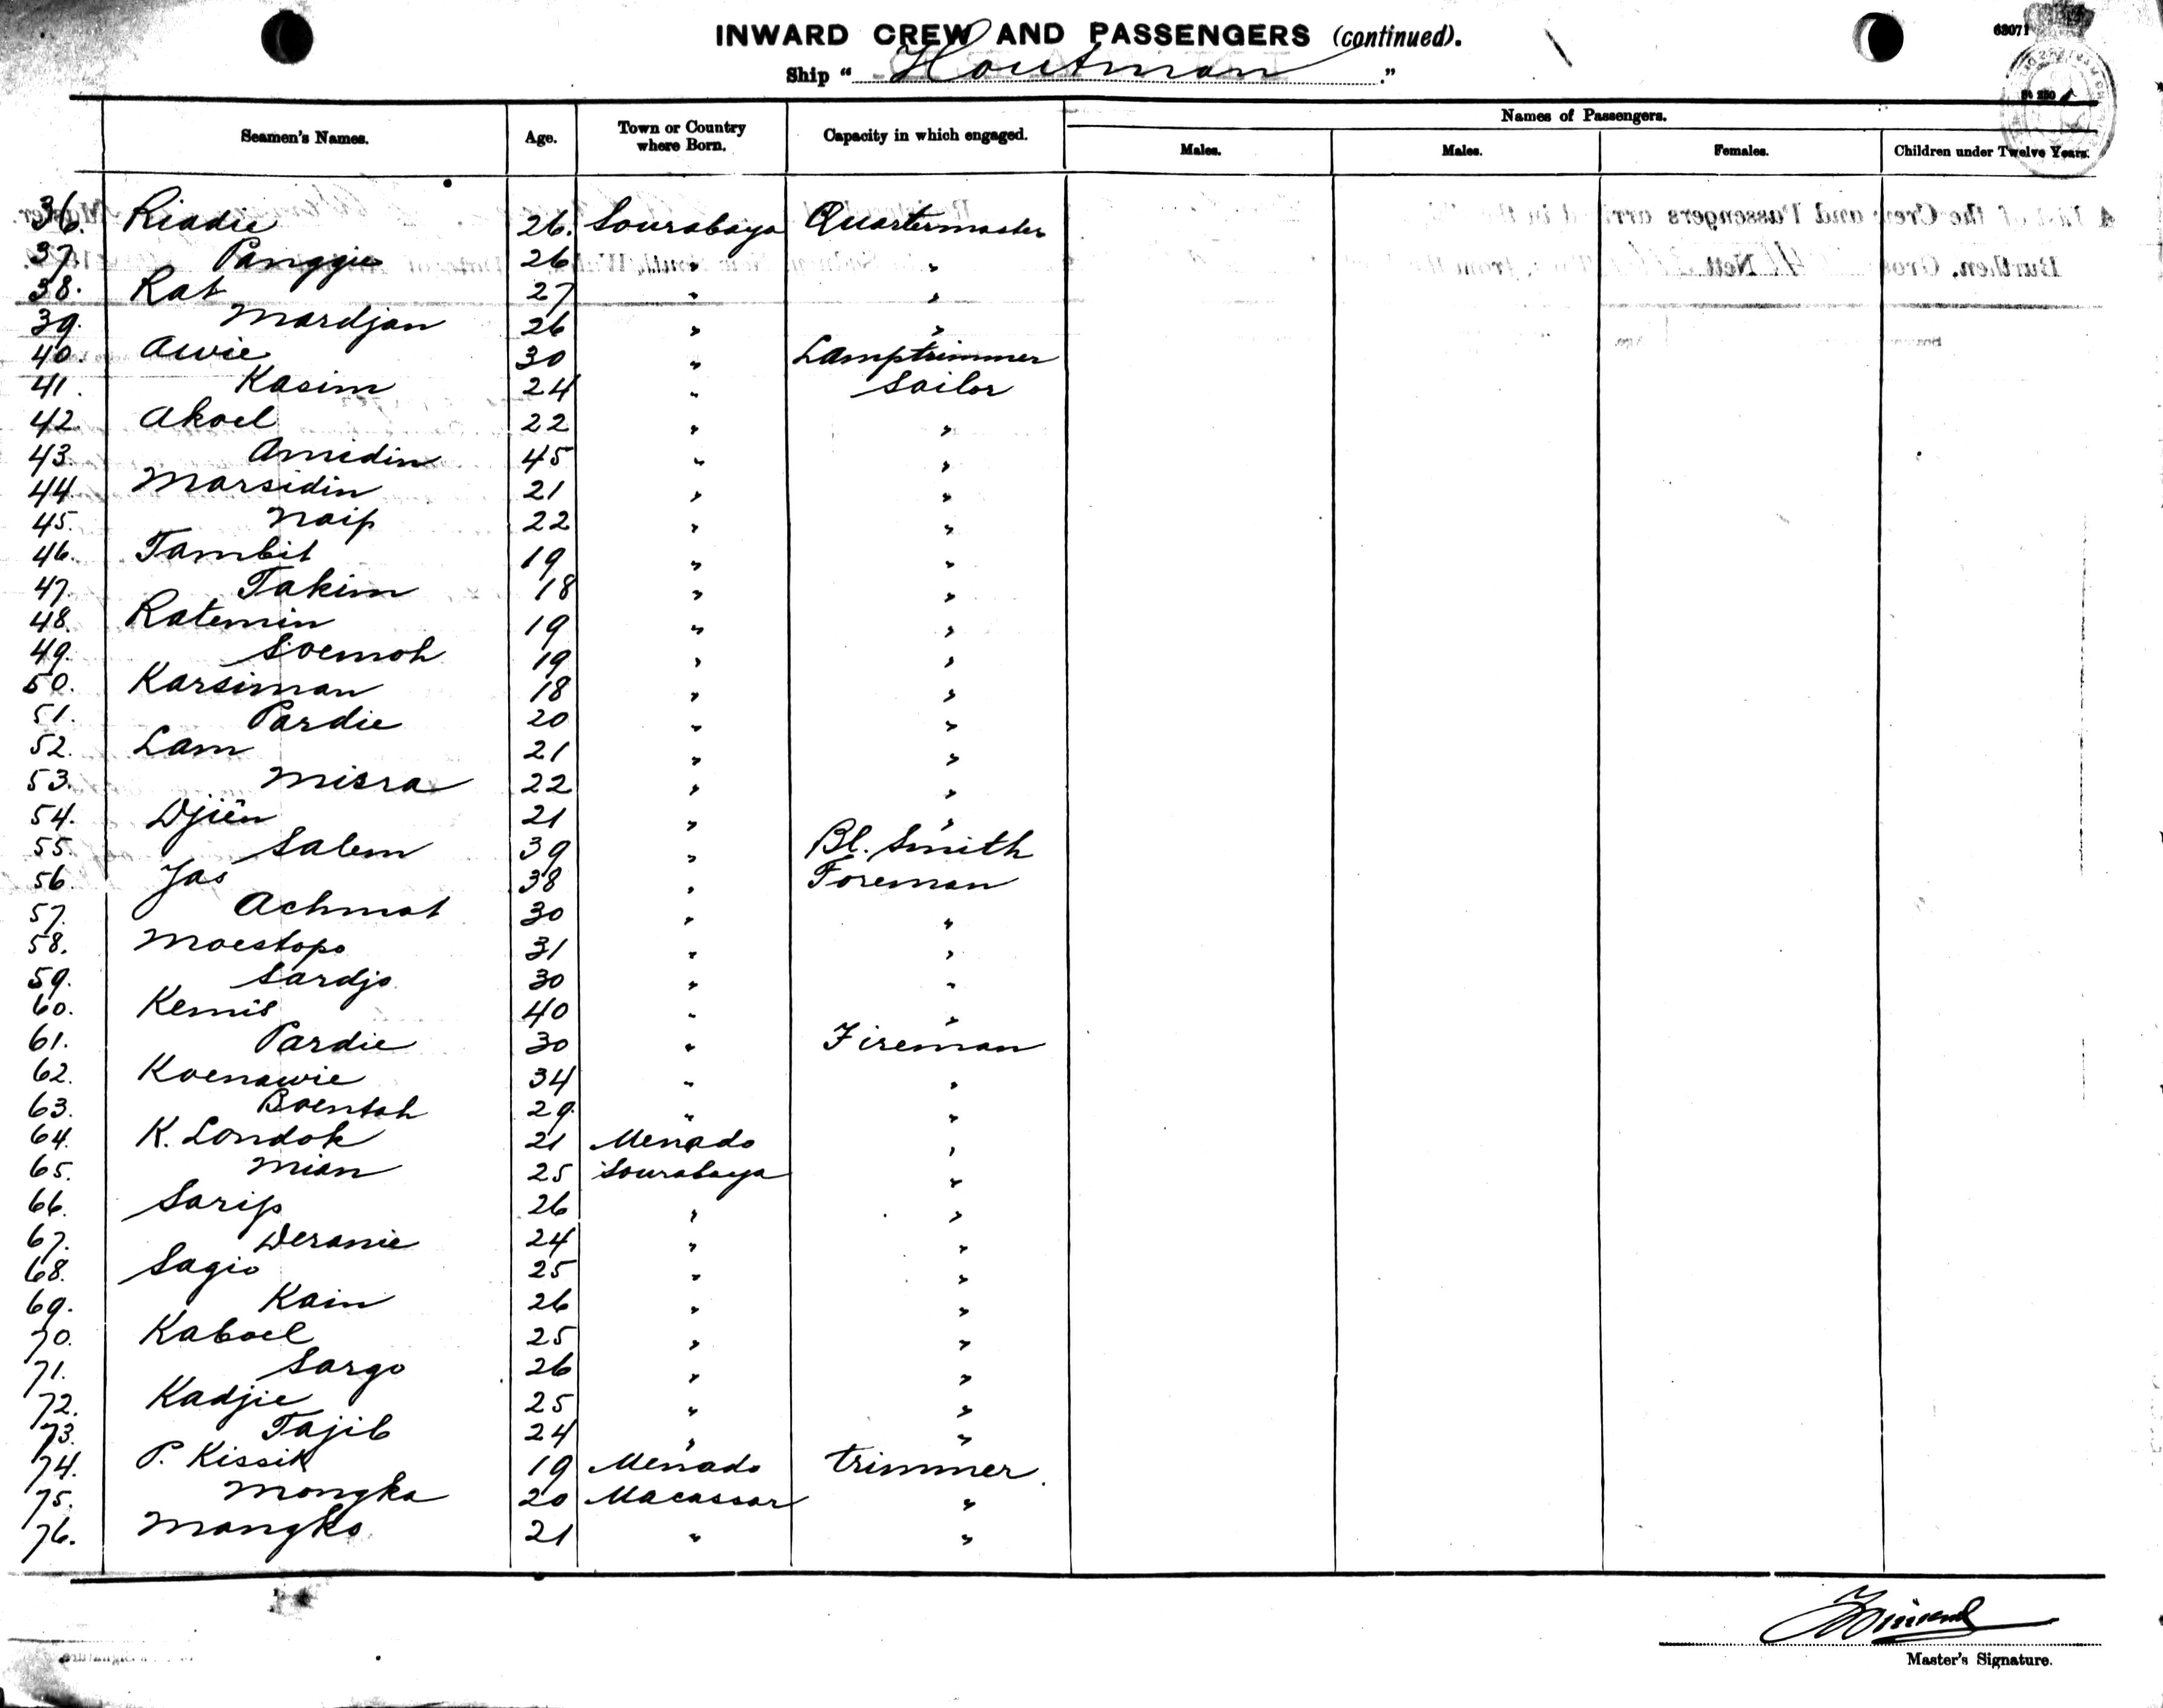 INWARD CREW AND PASSENGERS (continued).
63071
Ship “ Houtman .”
Seamen's Names. Age. Town or Country where Born. Capacity in which engaged. Names of Passengers.
Males. Males. Females. Children under Twelve Years.
36. Riadie 26. Sourabaya Quartermaster
37. Panggie 26 " "
38. Rat 27 " "
39. Mardjan 26 " "
40. Awie 30 " Lamptrimmer
41. Kasim 24 " Sailor
42. Akoel 22 " "
43. Amidin 45 " "
44. Marsidin 21 " "
45. Naip 22 " "
46. Tambit 19 " "
47. Takim 18 " "
48. Ratemin 19 " "
49. Soemoh 19 " "
50. Karsiman 18 " "
51. Pardie 20 " "
52. Lam 21 " "
53. Misra 22 " "
54. Djiên 21 " "
55. Salem 39 " Bl. Smith
56. Jas 38 " Foreman
57. Achmat 30 " "
58. Moestopo 31 " "
59. Sardjo 30 " "
60. Kemis 40 " "
61. Pardie 30 " Fireman
62. Koenawie 34 " "
63. Boentah 29 " "
64. K. Londok 21 Menado "
65. Mian 25 Sourabaya "
66. Sarip 26 " "
67. Deramie 24 " "
68. Sagio 25 " "
69. Kain 26 " "
70. Kaboel 25 " "
71. Sargo 26 " "
72. Kadjie 25 " "
73. Tajib 24 " "
74. P. Kissik 19 Menado trimmer.
75. Mongka 20 Macassar "
76. Mangko 21 " "
Master's Signature.